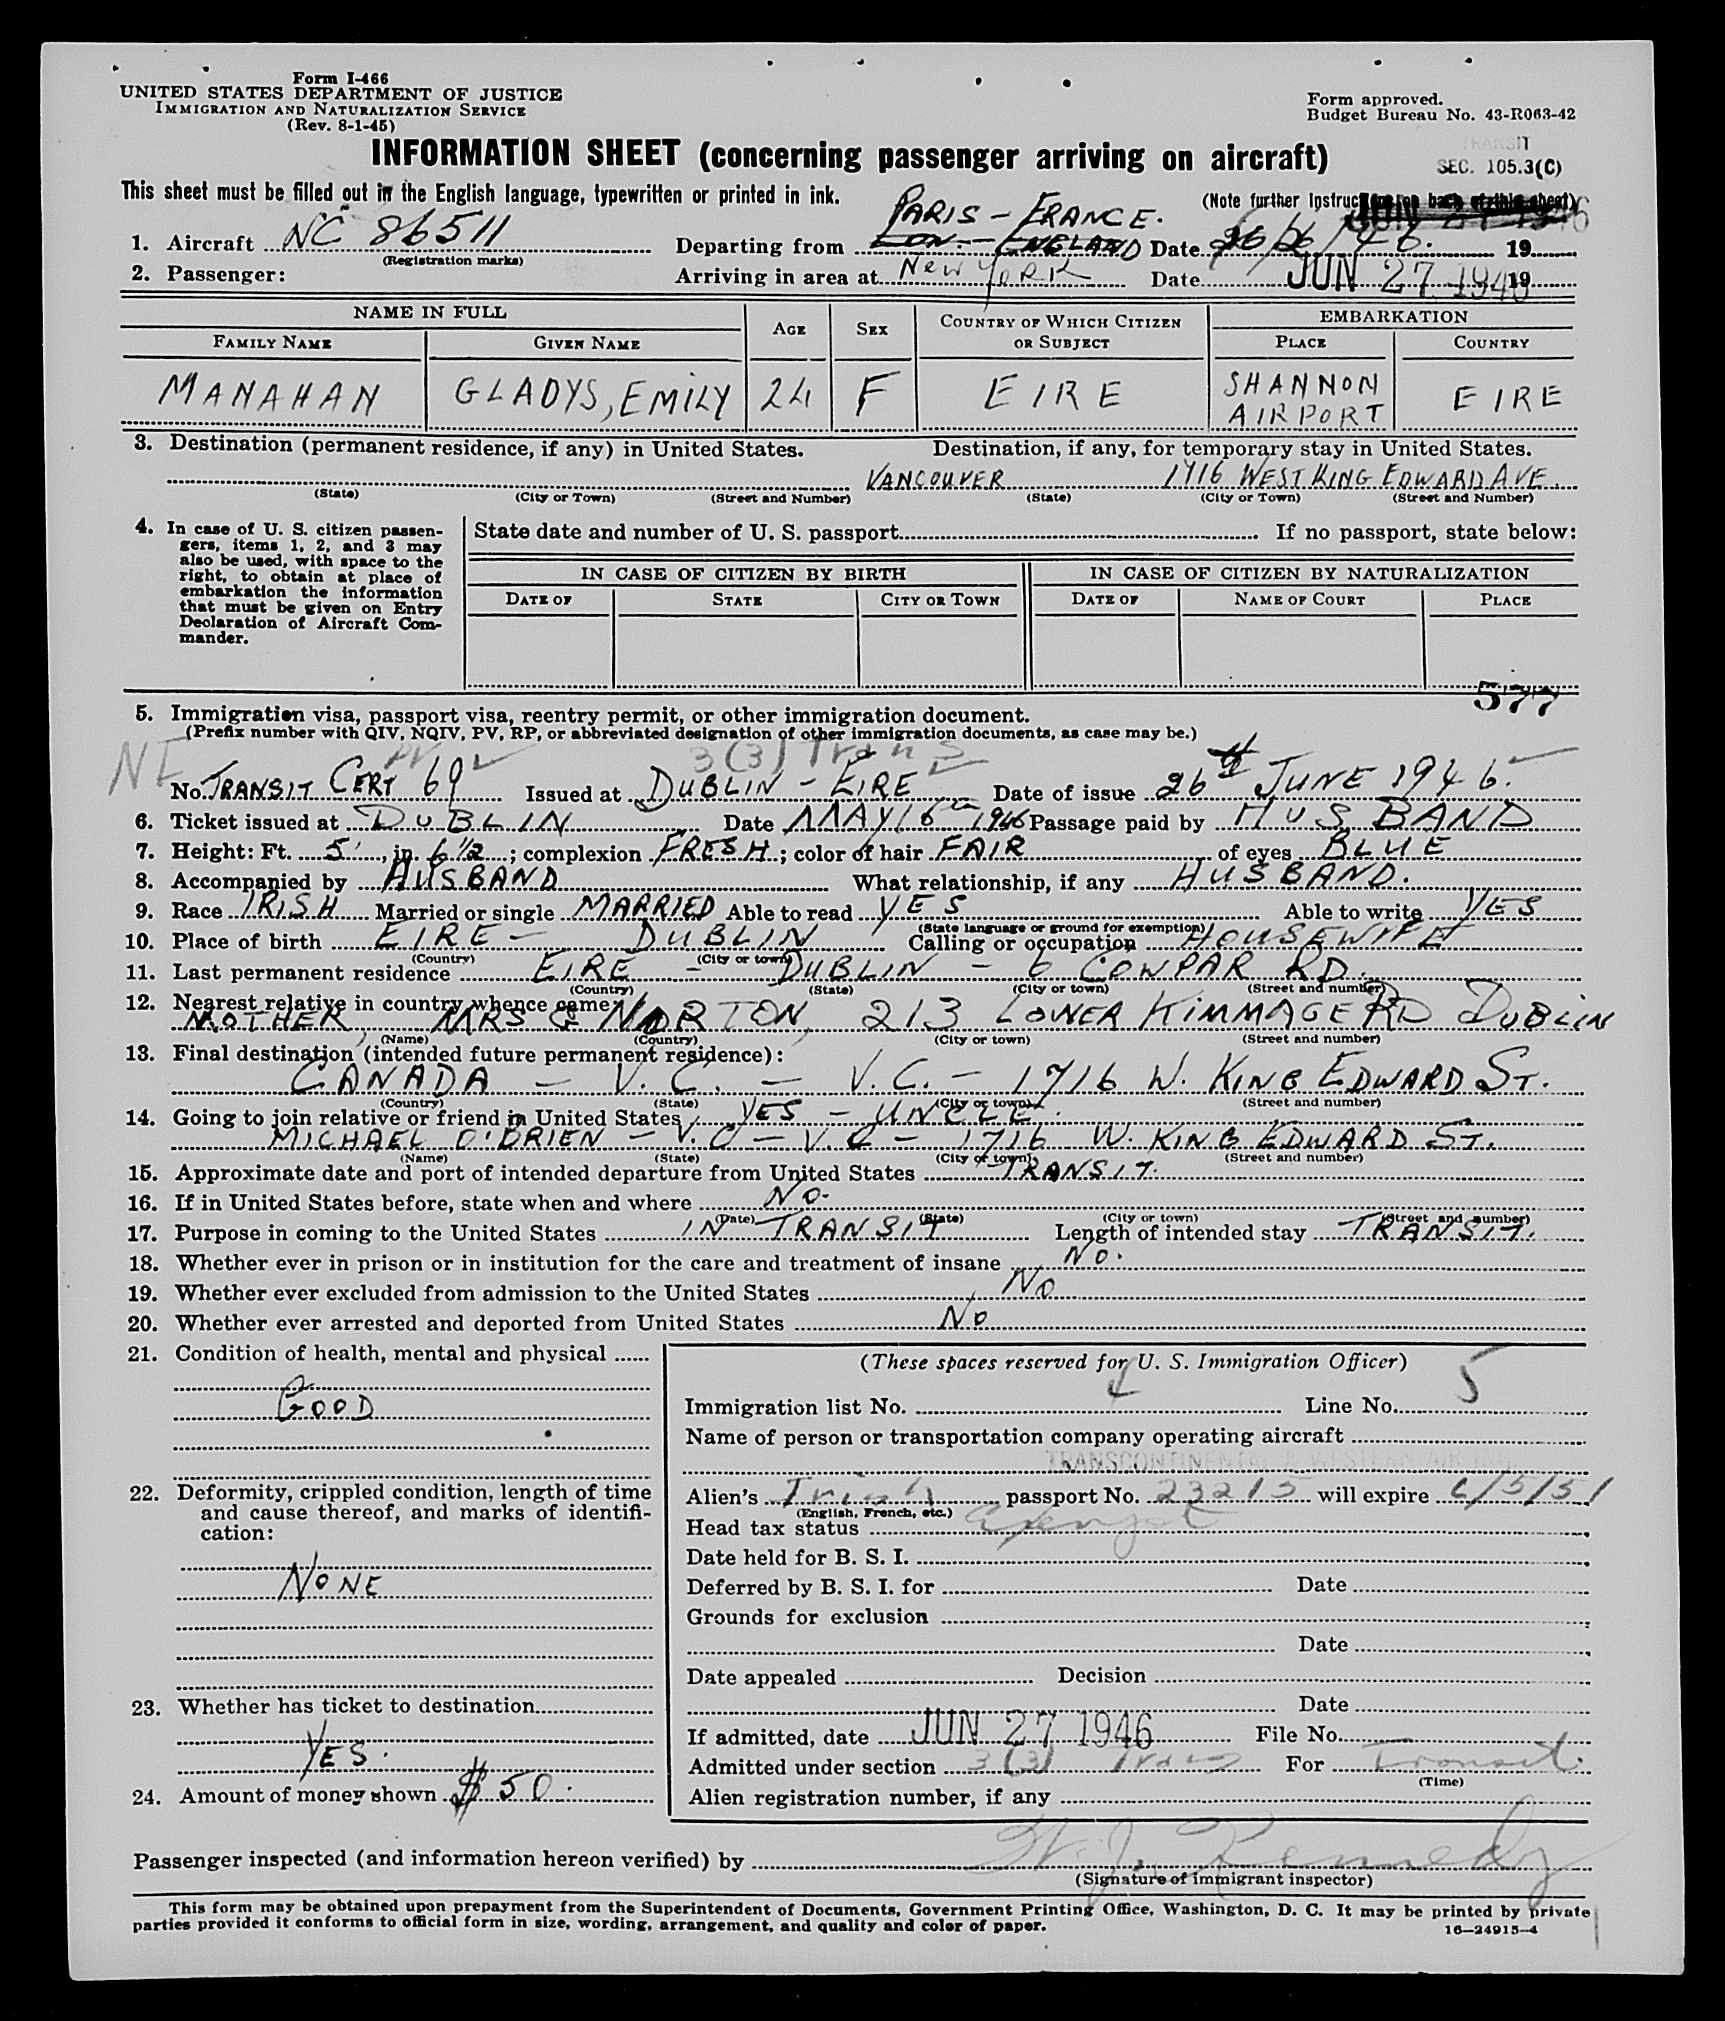 Form I-466
UNITED STATES DEPARTMENT OF JUSTICE
IMMIGRATION AND NATURALIZATION SERVICE
(Rev. 8-1-45)
Form approved.
Budget Bureau No. 43-R063-42
INFORMATION SHEET (concerning passenger arriving on aircraft)
TRANSIT
SEC. 105.3(C)
This sheet must be filled out in the English language, typewritten or printed in ink.
(Note further instructions on back of this sheet)
PARIS - FRANCE.
1. Aircraft NC 86511 Departing from LON. - ENGLAND Date 26/6/46. 19
(Registration marks)
2. Passenger: Arriving in area at NEW YORK Date JUN 27 1946 19
NAME IN FULL
AGE SEX COUNTRY OF WHICH CITIZEN OR SUBJECT EMBARKATION
FAMILY NAME GIVEN NAME PLACE COUNTRY
MANAHAN GLADYS, EMILY 24 F EIRE SHANNON AIRPORT EIRE
3. Destination (permanent residence, if any) in United States. Destination, if any, for temporary stay in United States.
VANCOUVER 1716 WEST KING EDWARD AVE.
(State) (City or Town) (Street and Number) (State) (City or Town) (Street and Number)
4. In case of U. S. citizen passen-
gers, items 1, 2, and 3 may
also be used, with space to the
right, to obtain at place of
embarkation the information
that must be given on Entry
Declaration of Aircraft Com-
mander.
State date and number of U. S. passport If no passport, state below:
IN CASE OF CITIZEN BY BIRTH IN CASE OF CITIZEN BY NATURALIZATION
DATE OF STATE CITY OR TOWN DATE OF NAME OF COURT PLACE
577
5. Immigration visa, passport visa, reentry permit, or other immigration document.
(Prefix number with QIV, NQIV, PV, RP, or abbreviated designation of other immigration documents, as case may be.)
PV 3(3) Trans
No. TRANSIT CERT 69 Issued at DUBLIN - EIRE Date of issue 26th JUNE 1946.
6. Ticket issued at DUBLIN Date MAY 16th 1946 Passage paid by HUSBAND
7. Height: Ft. 5', in. 6 1/2; complexion FRESH; color of hair FAIR of eyes BLUE
8. Accompanied by HUSBAND What relationship, if any HUSBAND.
9. Race IRISH Married or single MARRIED Able to read YES Able to write YES
(State language or ground for exemption)
10. Place of birth EIRE - DUBLIN Calling or occupation HOUSEWIFE
(Country) (City or town)
11. Last permanent residence EIRE - DUBLIN - 6 COWPAR RD.
(Country) (State) (City or town) (Street and number)
12. Nearest relative in country whence came
MOTHER, MRS G NORTON, 213 LOWER KIMMAGE RD DUBLIN
(Name) (Country) (City or town) (Street and number)
13. Final destination (intended future permanent residence):
CANADA - V.C. - V.C. - 1716 W. KING EDWARD ST.
(Country) (State) (City or town) (Street and number)
14. Going to join relative or friend in United States YES - UNCLE.
MICHAEL O'BRIEN - V.C - V.C - 1716 W. KING EDWARD ST.
(Name) (State) (City or town) (Street and number)
15. Approximate date and port of intended departure from United States TRANSIT.
16. If in United States before, state when and where NO.
(Date) (State) (City or town) (Street and number)
17. Purpose in coming to the United States IN TRANSIT Length of intended stay TRANSIT.
18. Whether ever in prison or in institution for the care and treatment of insane NO.
19. Whether ever excluded from admission to the United States NO
20. Whether ever arrested and deported from United States NO
21. Condition of health, mental and physical
GOOD
22. Deformity, crippled condition, length of time
and cause thereof, and marks of identifi-
cation:
NONE
23. Whether has ticket to destination
YES.
24. Amount of money shown $50.
(These spaces reserved for U. S. Immigration Officer)
Immigration list No. Line No. 5
Name of person or transportation company operating aircraft
TRANSCONTINENTAL & WESTERN AIR
Alien's Irish passport No. 23215 will expire 6/5/51
(English, French, etc.)
Head tax status Exempt
Date held for B. S. I.
Deferred by B. S. I. for Date
Grounds for exclusion
Date
Date appealed Decision
Date
If admitted, date JUN 27 1946 File No.
Admitted under section 3(3) Trans For Transit
(Time)
Alien registration number, if any
Passenger inspected (and information hereon verified) by W. J. Kennedy
(Signature of immigrant inspector)
This form may be obtained upon prepayment from the Superintendent of Documents, Government Printing Office, Washington, D. C. It may be printed by private
parties provided it conforms to official form in size, wording, arrangement, and quality and color of paper.
16—24915-4